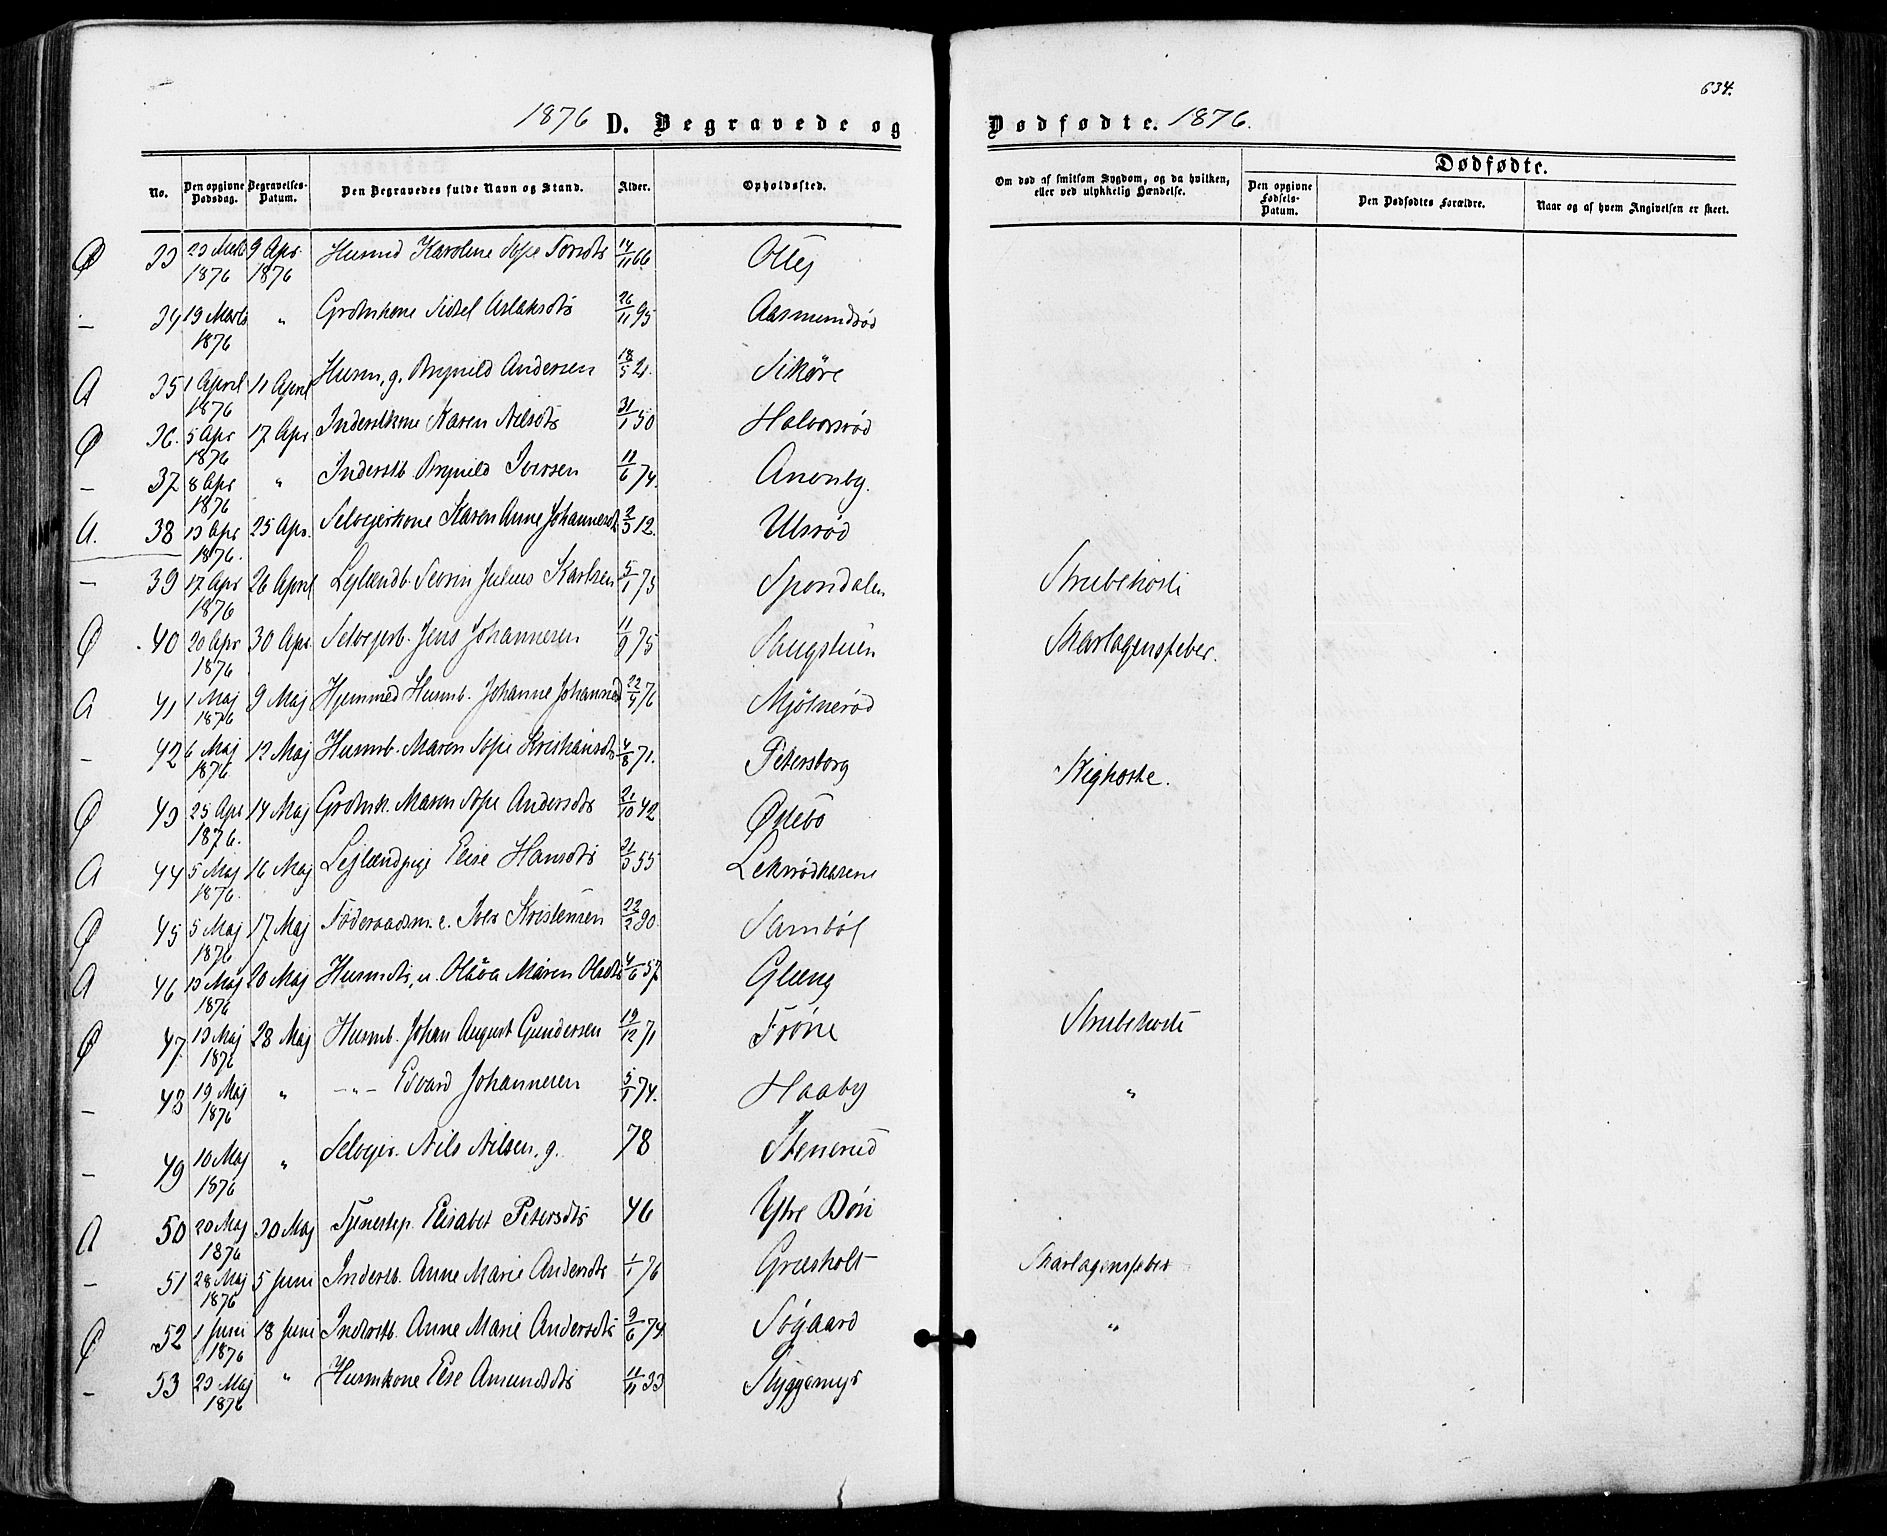 634.
1876 D. Begravede og Dødfødte. 1876.
Dødfødte.
No. Den opgivne Dødsdag. Begravelses-Datum. Den Begravedes fulde Navn og Stand. Alder. Opholdssted. Om død af smitsom Sygdom, og da hvilken, eller ved ulykkelig Hændelse. Den opgivne Fødsels-Datum. Den Dødfødtes Forældre. Naar og af hvem Angivelsen er skeet.
Ø 33 23 Marts 1876 9 Apr. 1876 Karoline Sofie 14/11 66
— 34 19 Marts 1876 „ Sidsel Aslaksdts 26/11 95 Aasmundrød
A 35 1 April 1876 11 April Husm. g. Brynild Andersen 18/5 21. Sikøre
Ø 36. 5 Apr 1876 17 Apr. Inderstkone Karen Nilsdts 31/1 50 Halvorsrød
— 37 8 Apr 1876 „ Inderstb. Brynild Iversen 11/6 74.
A. 38 13 Apr 1876. 25 Apr. Selveierkone Karen Anne Johannesdt 2/3 12. Ulsrød
— 39 17 Apr 1876 26 April Leilændb. Severin Julius Karlsen 5/1 75 Spondalen Strubehoste
Ø 40 20 Apr 1876 30 Apr. Selveierb. Jens Johannesen 11/9 75 Haugstuen Skarlagensfeber.
A 41 1 Maj 1876 9 Maj Hjemmed Husmb. Johanne 22/4 76 Mjølnerød
— 42 6 Maj 1876 12 Maj Husmb. Maren Sofie Kristiansdts 4/8 71. Petersborg Kighoste.
Ø 43 25 Apr 1876. 14 Maj Maren Sofie Andersdts 21/10 42 Østebø
A 44 5 Maj 1876. 16 Maj Leilændpige Elise Hansdts 31/3 55
Ø 45 5 Maj 1876 17 Maj Føderaadsm. e. Iver Kristensen 22/2 90. Sambøl
A 46 13 Maj 1876 20 Maj Husmdts, u. Olava Maren Olsdts 4/6 57. Glæng
Ø 47. 13 Maj 1876 28 Maj Husmb. Johan August Gundersen 19/12 71 Frøne Strubehoste
— 48 19 Maj 1876 „ —„— Edvard Johannesen 5/1 74. Haaby „
— 49 10 Maj 1876 „ Selveier. Nils Nilsen, g. 78 Stenerud
A 50 20 Maj 1876 30 Maj Tjenestep. Elisabet Petersdts 46 Ystre Bøn
— 51 28 Maj 1876 5 Juni Inderstb. Anne Marie Andersdts 1/1 76 Græsholt Skarlagensfeber
Ø 52 1 Juni 1876 18 Juni Inderstb. Anne Marie Andersdts 9/6 74. Søgaard „
— 53 23 Maj 1876 „ Husmkone Else Amundsdts 11/11 33 Styggemyr